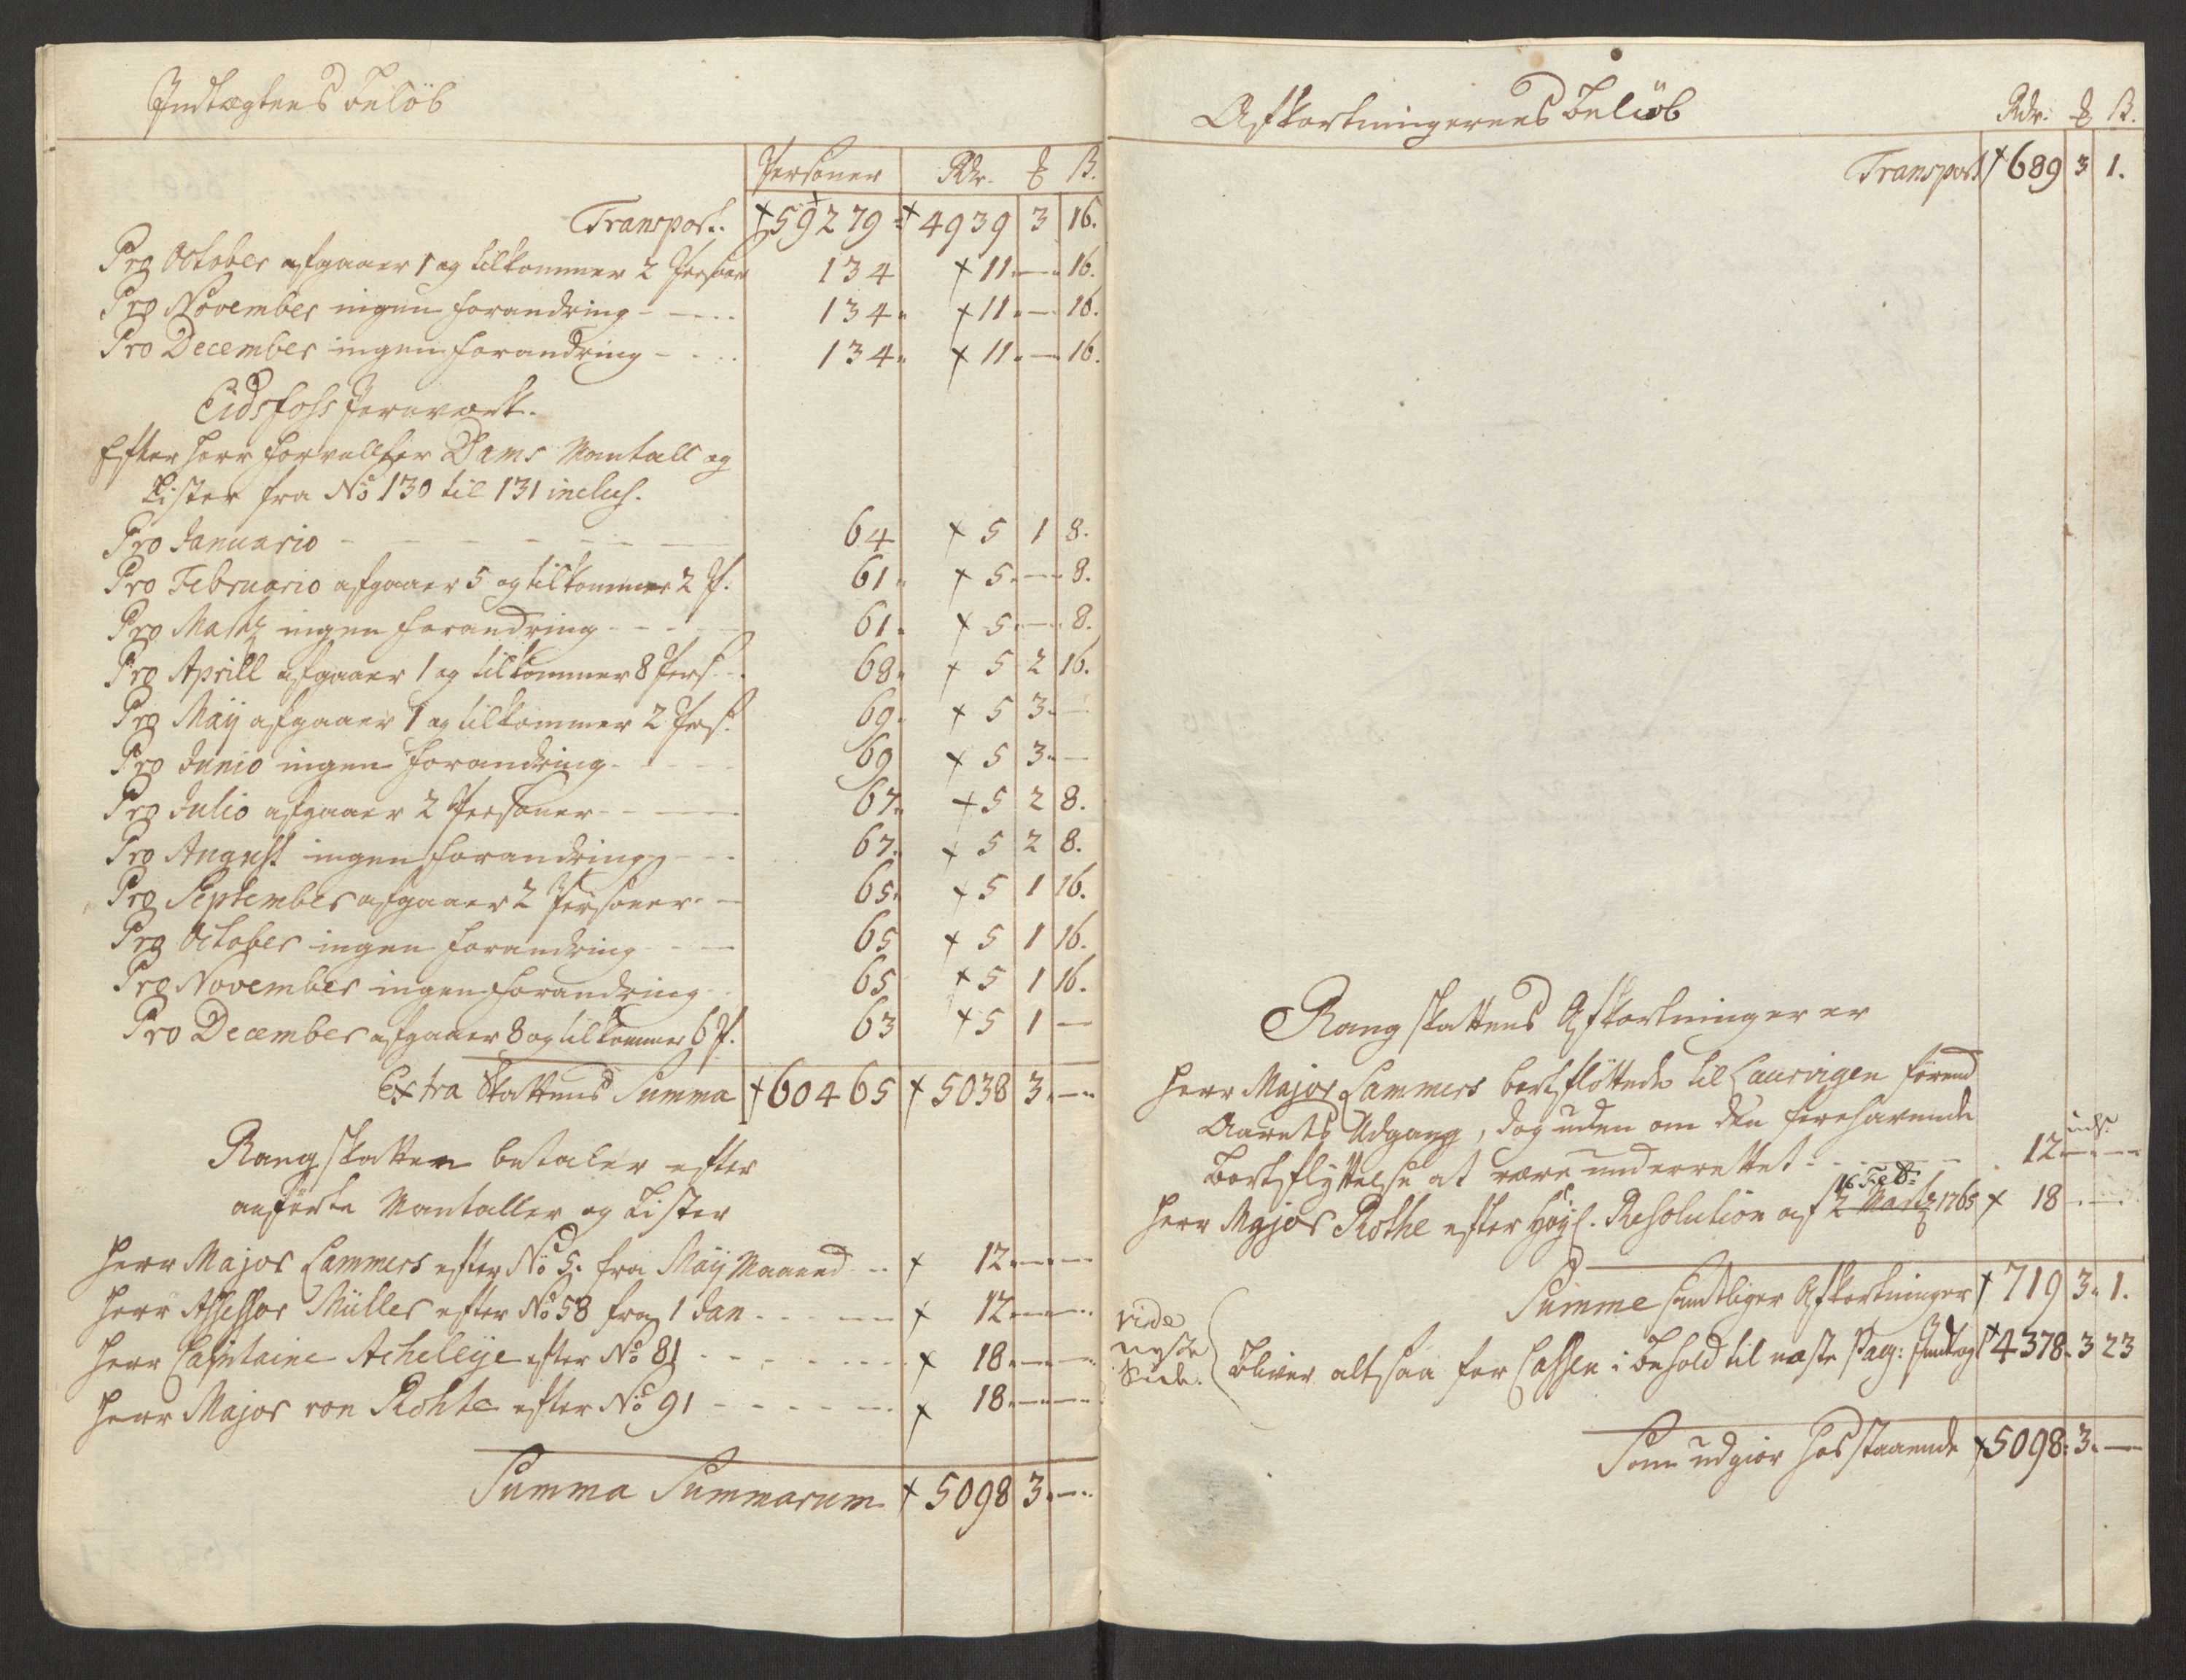 Indtægtens beløb
Personer Rdr. ℔ ß.
Transport. 59279 4939 3 16.
Pro October afgaaer 1 og tilkommer 2 Personer 134 11. — 16.
Pro November ingen forandring 134. 11. — 16.
Pro December ingen forandring 134. 11. — 16.
Eidsfoss Jernværk.
Efter Herr forvallter Dams Mantall og
Lister fra No 130 til 131 inclus.
Pro Januario 64 5 1 8.
Pro Februario afgaaer 5 og tilkommer 2 P. 61. 5. — 8.
Pro Martz ingen forandring 61. 5. — 8.
Pro Aprill afgaaer 1 og tilkommer 8 Pers. 68. 5 2 16.
Pro Maÿ afgaaer 1 og tilkommer 2 Pers. 69. 5 3. —
Pro Junio ingen forandring 69 5 3. —
Pro Julio afgaaer 2 Personer 67. 5 2 8.
Pro August ingen forandring 67. 5 2 8.
Pro September afgaaer 2 Personer 65. 5 1 16.
Pro October ingen forandring 65 5 1 16.
Pro November ingen forandring 65 5 1 16.
Pro December afgaaer 8 og tilkommer 6 P. 63 5 1 —
Extra Skattens Summa 60465 5038 3. —
Rang skatten betaler efter
anførte Mantaller og Lister
Herr Major Lammers efter No 5. fra Maÿ Maaned 12. — —
Herr Assessor Müller efter No 58 fra 1 Jan 12. — —
Herr Capitaine Acheleÿe efter No 81 18. — —
Herr Major von Rohte efter No 91 18. — —
Summa Summarum 5098 3. —
Afkortningernes beløb Rdr. ℔ ß.
Transport 689 3 1.
Rang skattens Afkortninger er
Herr Major Lammers bortfløttede til Laurvigen førend
Aarets Udgang, dog uden om den forehavende
bortflyttelse at være underrettet 12. — —
16 Feb:
Herr Major Rothe efter Høyl. Resolution af 2 Martz 1765 18. —
Summe samtliger Afkortninger 719 3. 1.
vide
næste
Side. Bliver altsaa for Cassen i behold til næste Pag: Indtægt 4378. 3 23
Som udgiør hosstaaende 5098. 3. —